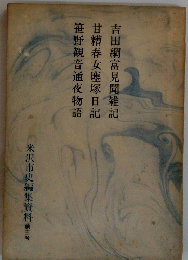 吉田綱富見聞雑記
甘糟春女塵塚日記
笹野観音通夜物語
米沢市史編集資料